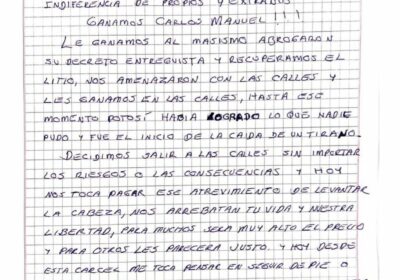 INDIFERENCIA DE PROPIOS Y EXTRAÑOS
GANAMOS CARLOS MANUEL!!!
LE GANAMOS AL MASISMO ABROGARON
SU DECRETO ENTREGUISTA Y RECUPERAMOS EL
LITIO, NOS AMENAZARON CON LAS CALLES Y
LES GANAMOS EN LAS CALLES, HASTA ESE
MOMENTO POTOSÍ HABIA LOGRADO LO QUE NADIE
PUDO Y FUE EL INICIO DE LA CAIDA DE UN TIRANO.
DECIDIMOS SALIR A LAS CALLES SIN IMPORTAR
LOS RIESGOS O LAS CONSECUENCIAS Y HOY
NOS TOCA PAGAR ESE ATREVIMIENTO DE LEVANTAR
LA CABEZA, NOS ARREBATAN TU VIDA Y NUESTRA
LIBERTAD, PARA MUCHOS SERA MUY ALTO EL PRECIO
Y PARA OTROS LES PARECERA JUSTO. Y HOY DESDE
ESTA CARCEL ME TOCA PENSAR EN SEGUIR DE PIE O